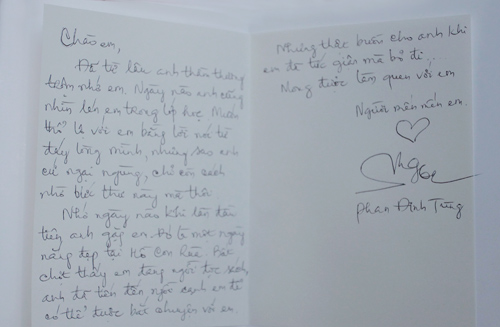 Chào em,
Đã từ lâu anh thầm thương
trộm nhớ em. Ngày nào anh cũng
nhìn lén em trong lớp học. Muốn
thổ lộ với em bằng lời nói từ
đáy lòng mình, nhưng sao anh
cứ ngại ngùng, chỉ còn cách
nhờ bức thư này mà thôi.
Nhớ ngày nào khi lần đầu
tiên anh gặp em. Đó là một ngày
nắng đẹp tại Hồ Con Rùa. Bất
chợt thấy em đang ngồi đọc sách,
anh đã tiến đến ngồi cạnh em để
có thể được bắt chuyện với em.
Nhưng thật buồn cho anh khi
em đã tức giận mà bỏ đi...
Mong được làm quen với em
Người mến mến em.
Phan Đình Trung